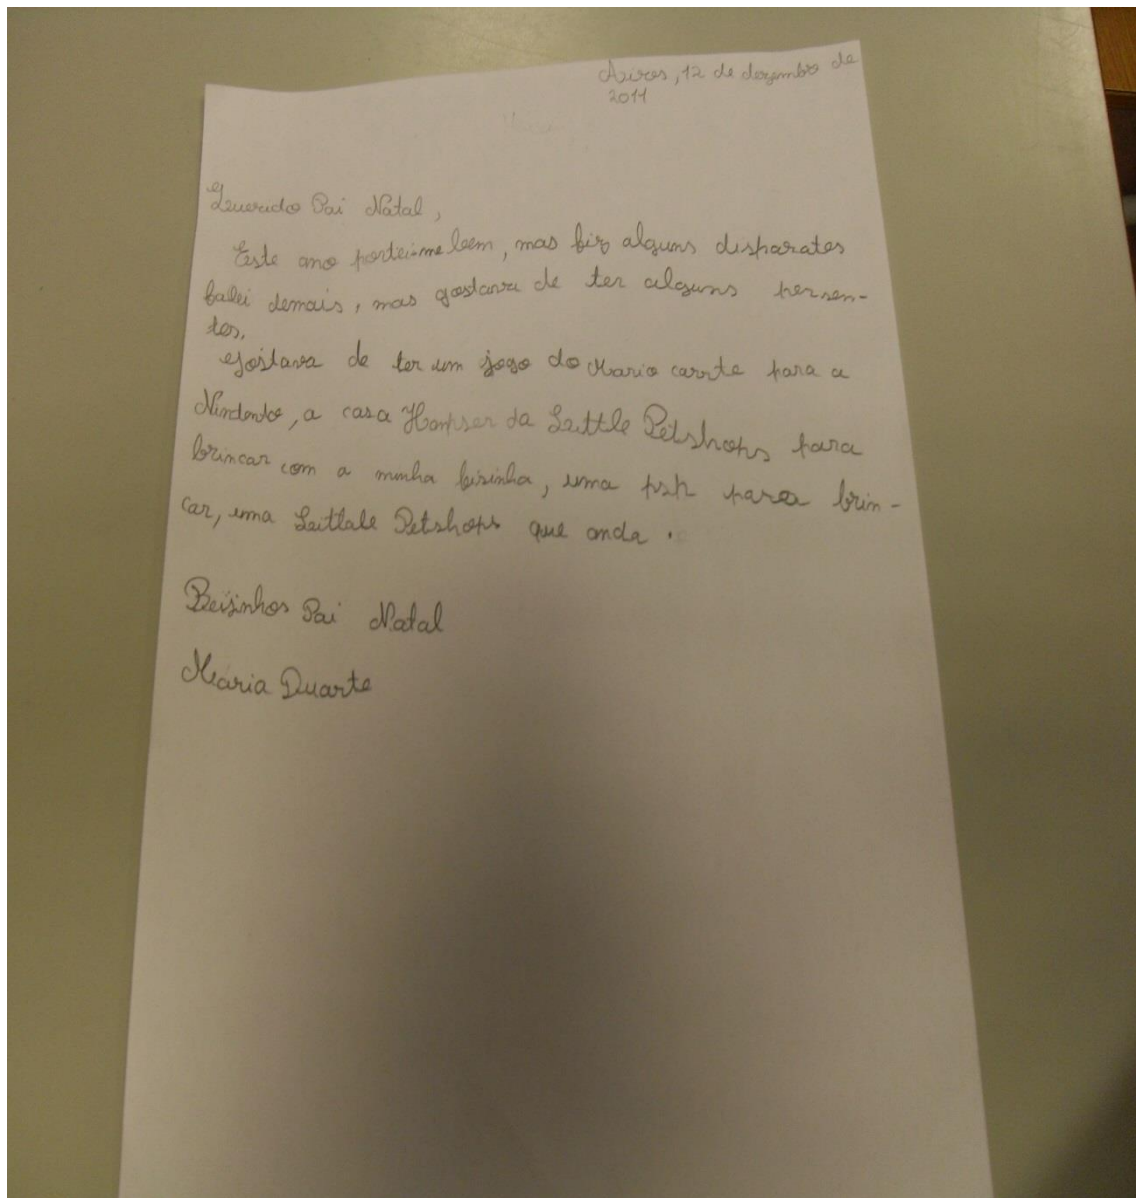 Aires, 12 de dezembro de
2011
Querido Pai Natal,
Este ano portei-me bem, mas fiz alguns disparates
falei demais, mas gostava de ter alguns persen-
tes.
Gostava de ter um jogo do Mario carrte para a
Nindento, a casa da Littlle Petshops para
brincar com a minha bisinha, uma psp para brin-
car, uma Leitlale Petshops que anda.
Beijinhos Pai Natal
Maria Duarte